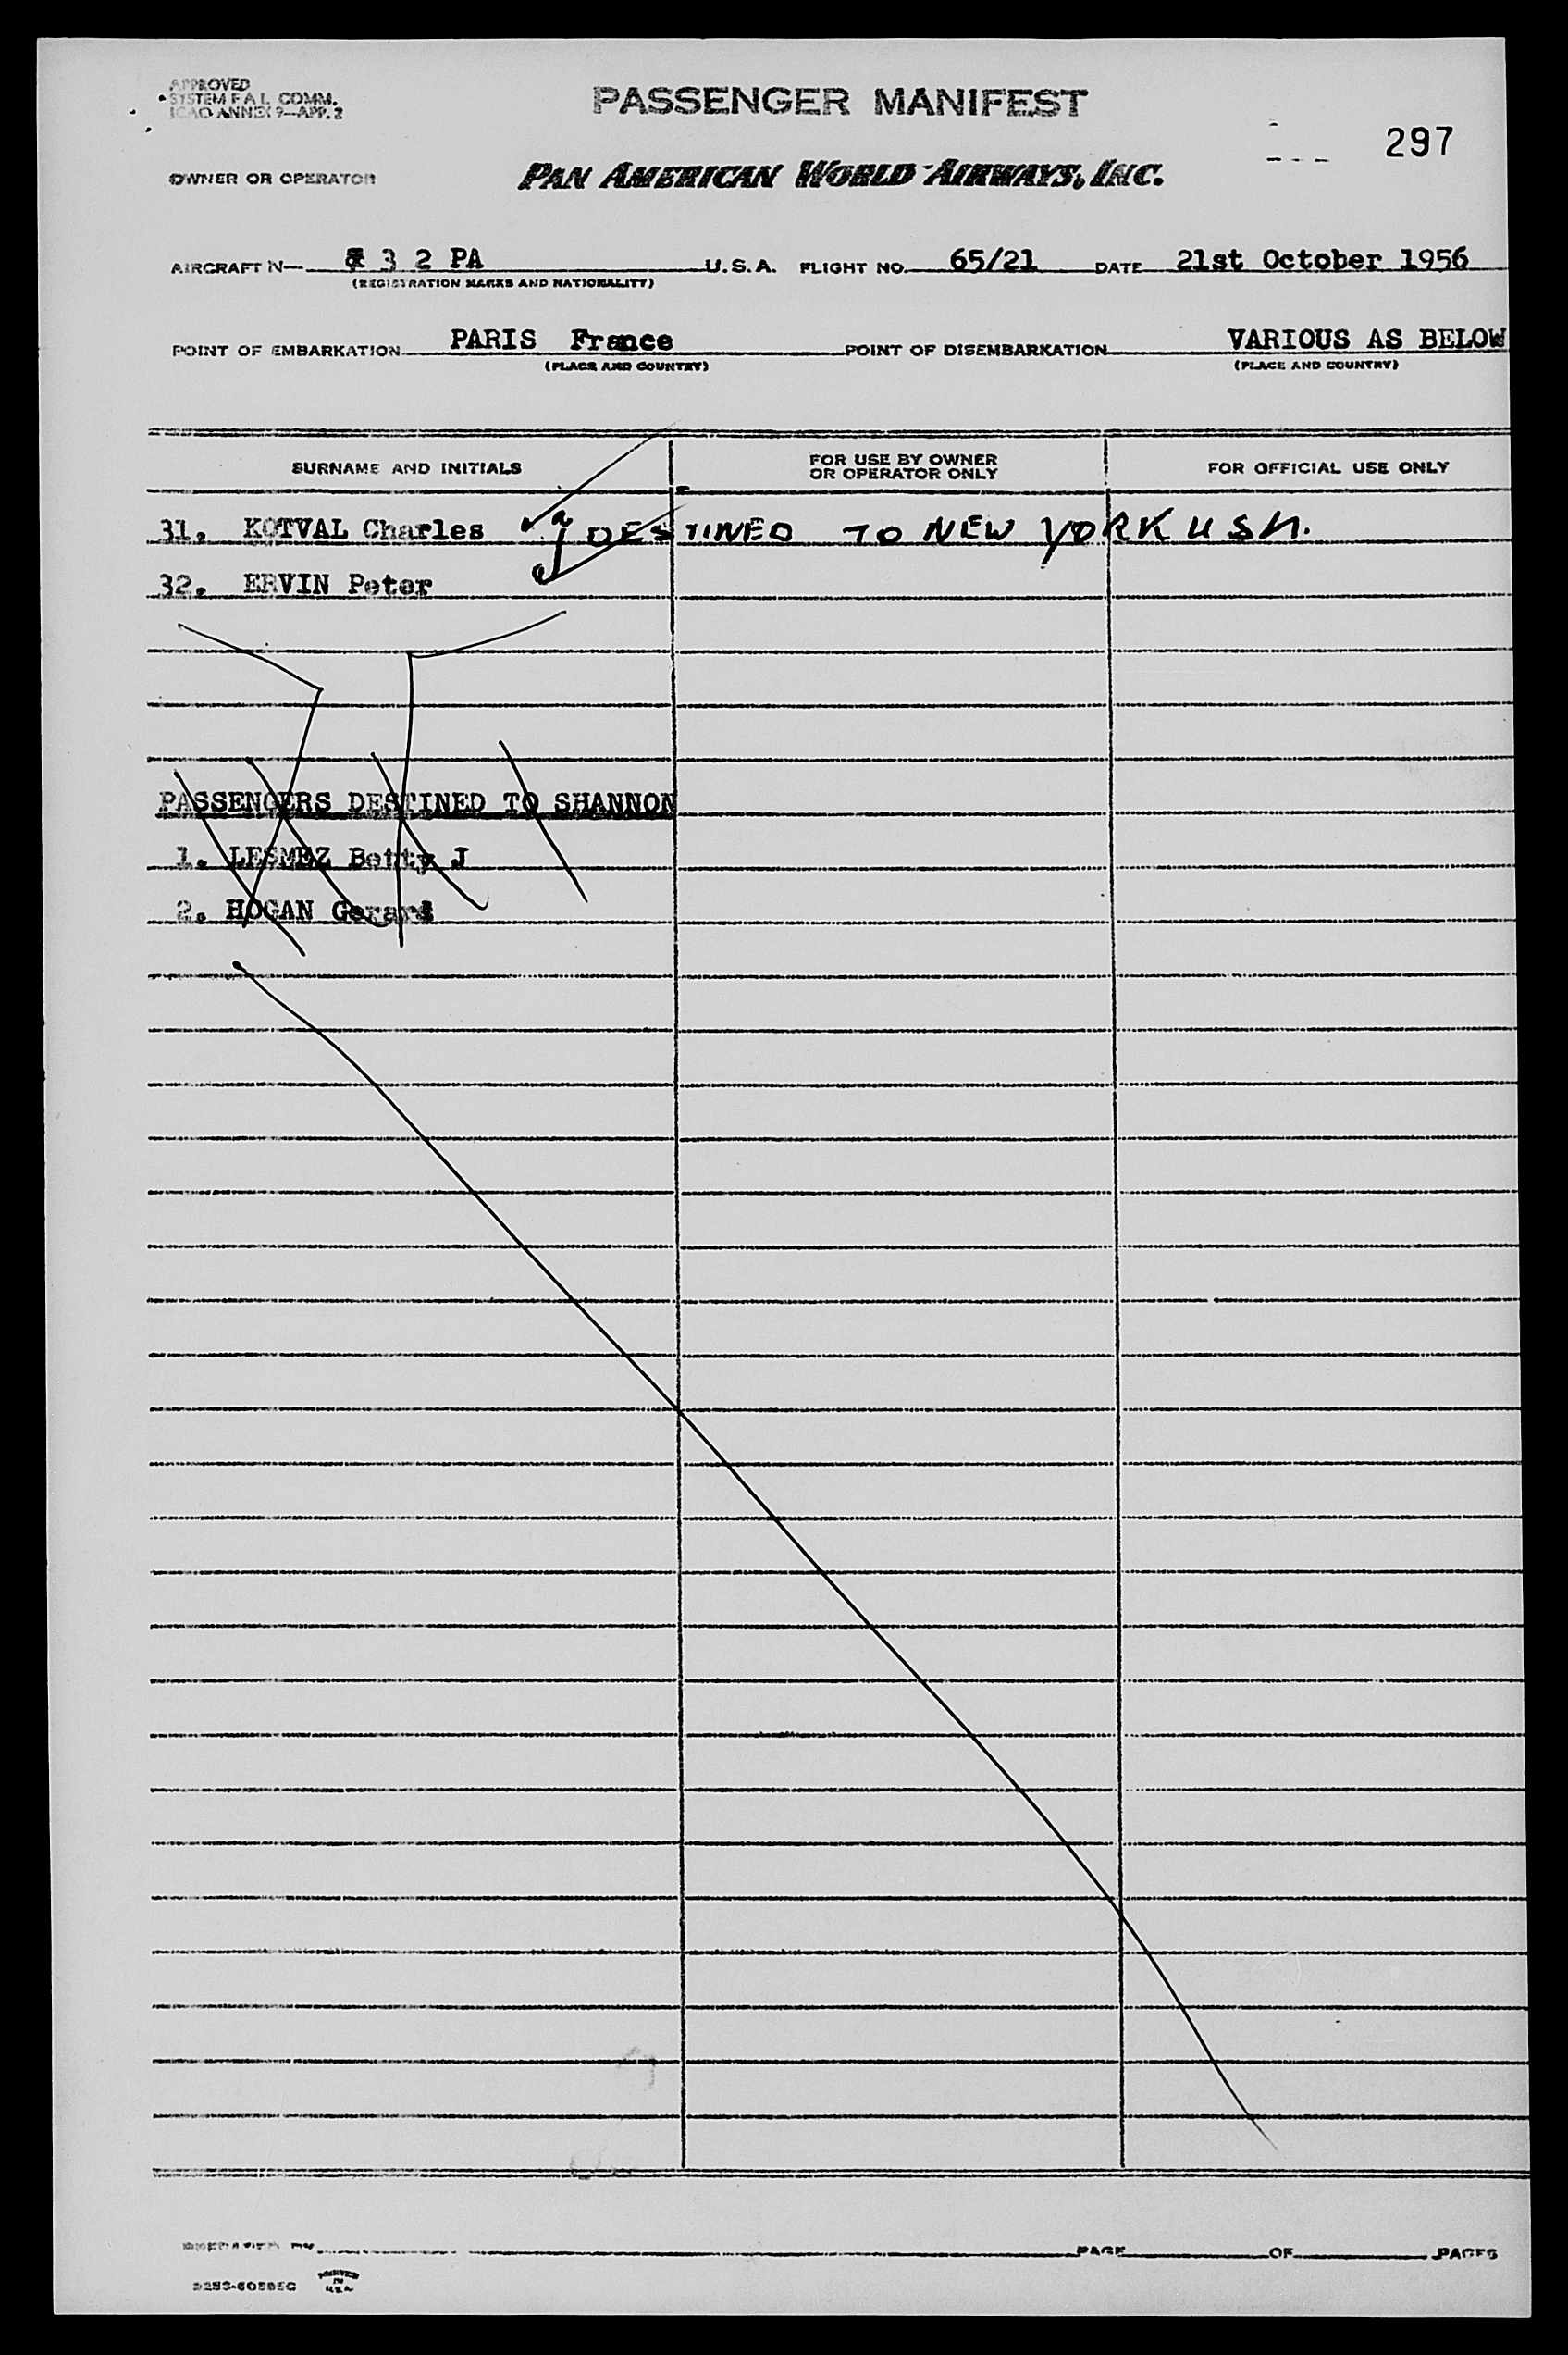 APPROVED
SYSTEM F A L COMM.
ICAO ANNEX 9—APP. 2
PASSENGER MANIFEST
297
OWNER OR OPERATOR
PAN AMERICAN WORLD AIRWAYS, INC.
AIRCRAFT N— 3 2 PA U.S.A. FLIGHT NO. 65/21 DATE 21st October 1956
(REGISTRATION MARKS AND NATIONALITY)
POINT OF EMBARKATION PARIS France POINT OF DISEMBARKATION VARIOUS AS BELOW
(PLACE AND COUNTRY) (PLACE AND COUNTRY)
SURNAME AND INITIALS
FOR USE BY OWNER
OR OPERATOR ONLY
FOR OFFICIAL USE ONLY
31. KOTVAL Charles DESTINED TO NEW YORK USA.
32. ERVIN Peter
PASSENGERS DESTINED TO SHANNON
1. LESMEZ Betty J
2. HOGAN Gerard
PREPARED BY PAGE OF PAGES
PRINTED
IN
U.S.A.